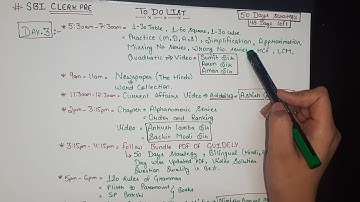 # SBI CLERK PRE
TO DO LIST
50 Days Strategy
48 Days left
DAY-3:-
* 5:30am - 7:30am = 1-30 Table, 1-60 Square, 1-30 cube
= Practice (M,D,A,S), Simplification, Approximation,
Missing No series, Wrong No series, HCF, LCM,
Quadratic → Video =
* 9am - 11am = Newspaper (The Hindu)
Word Collection.
= Current Affairs Video →
* 2pm - 3:15pm = Chapter = Alphanumeric Series
= Order and Ranking
Video = Ankush Lamba Sir
Sachin Modi Sir
* 3:15pm - 4:15pm = follow Bundle PDF of GUIDELY
50 Days Strategy, Bilingual
Day wise Updated PDF, Video Solution
Question Quality is Best.
* 5pm - 6pm = 120 Rules of Grammar
= Plinth to Paramount
= SP Bakshi
Books